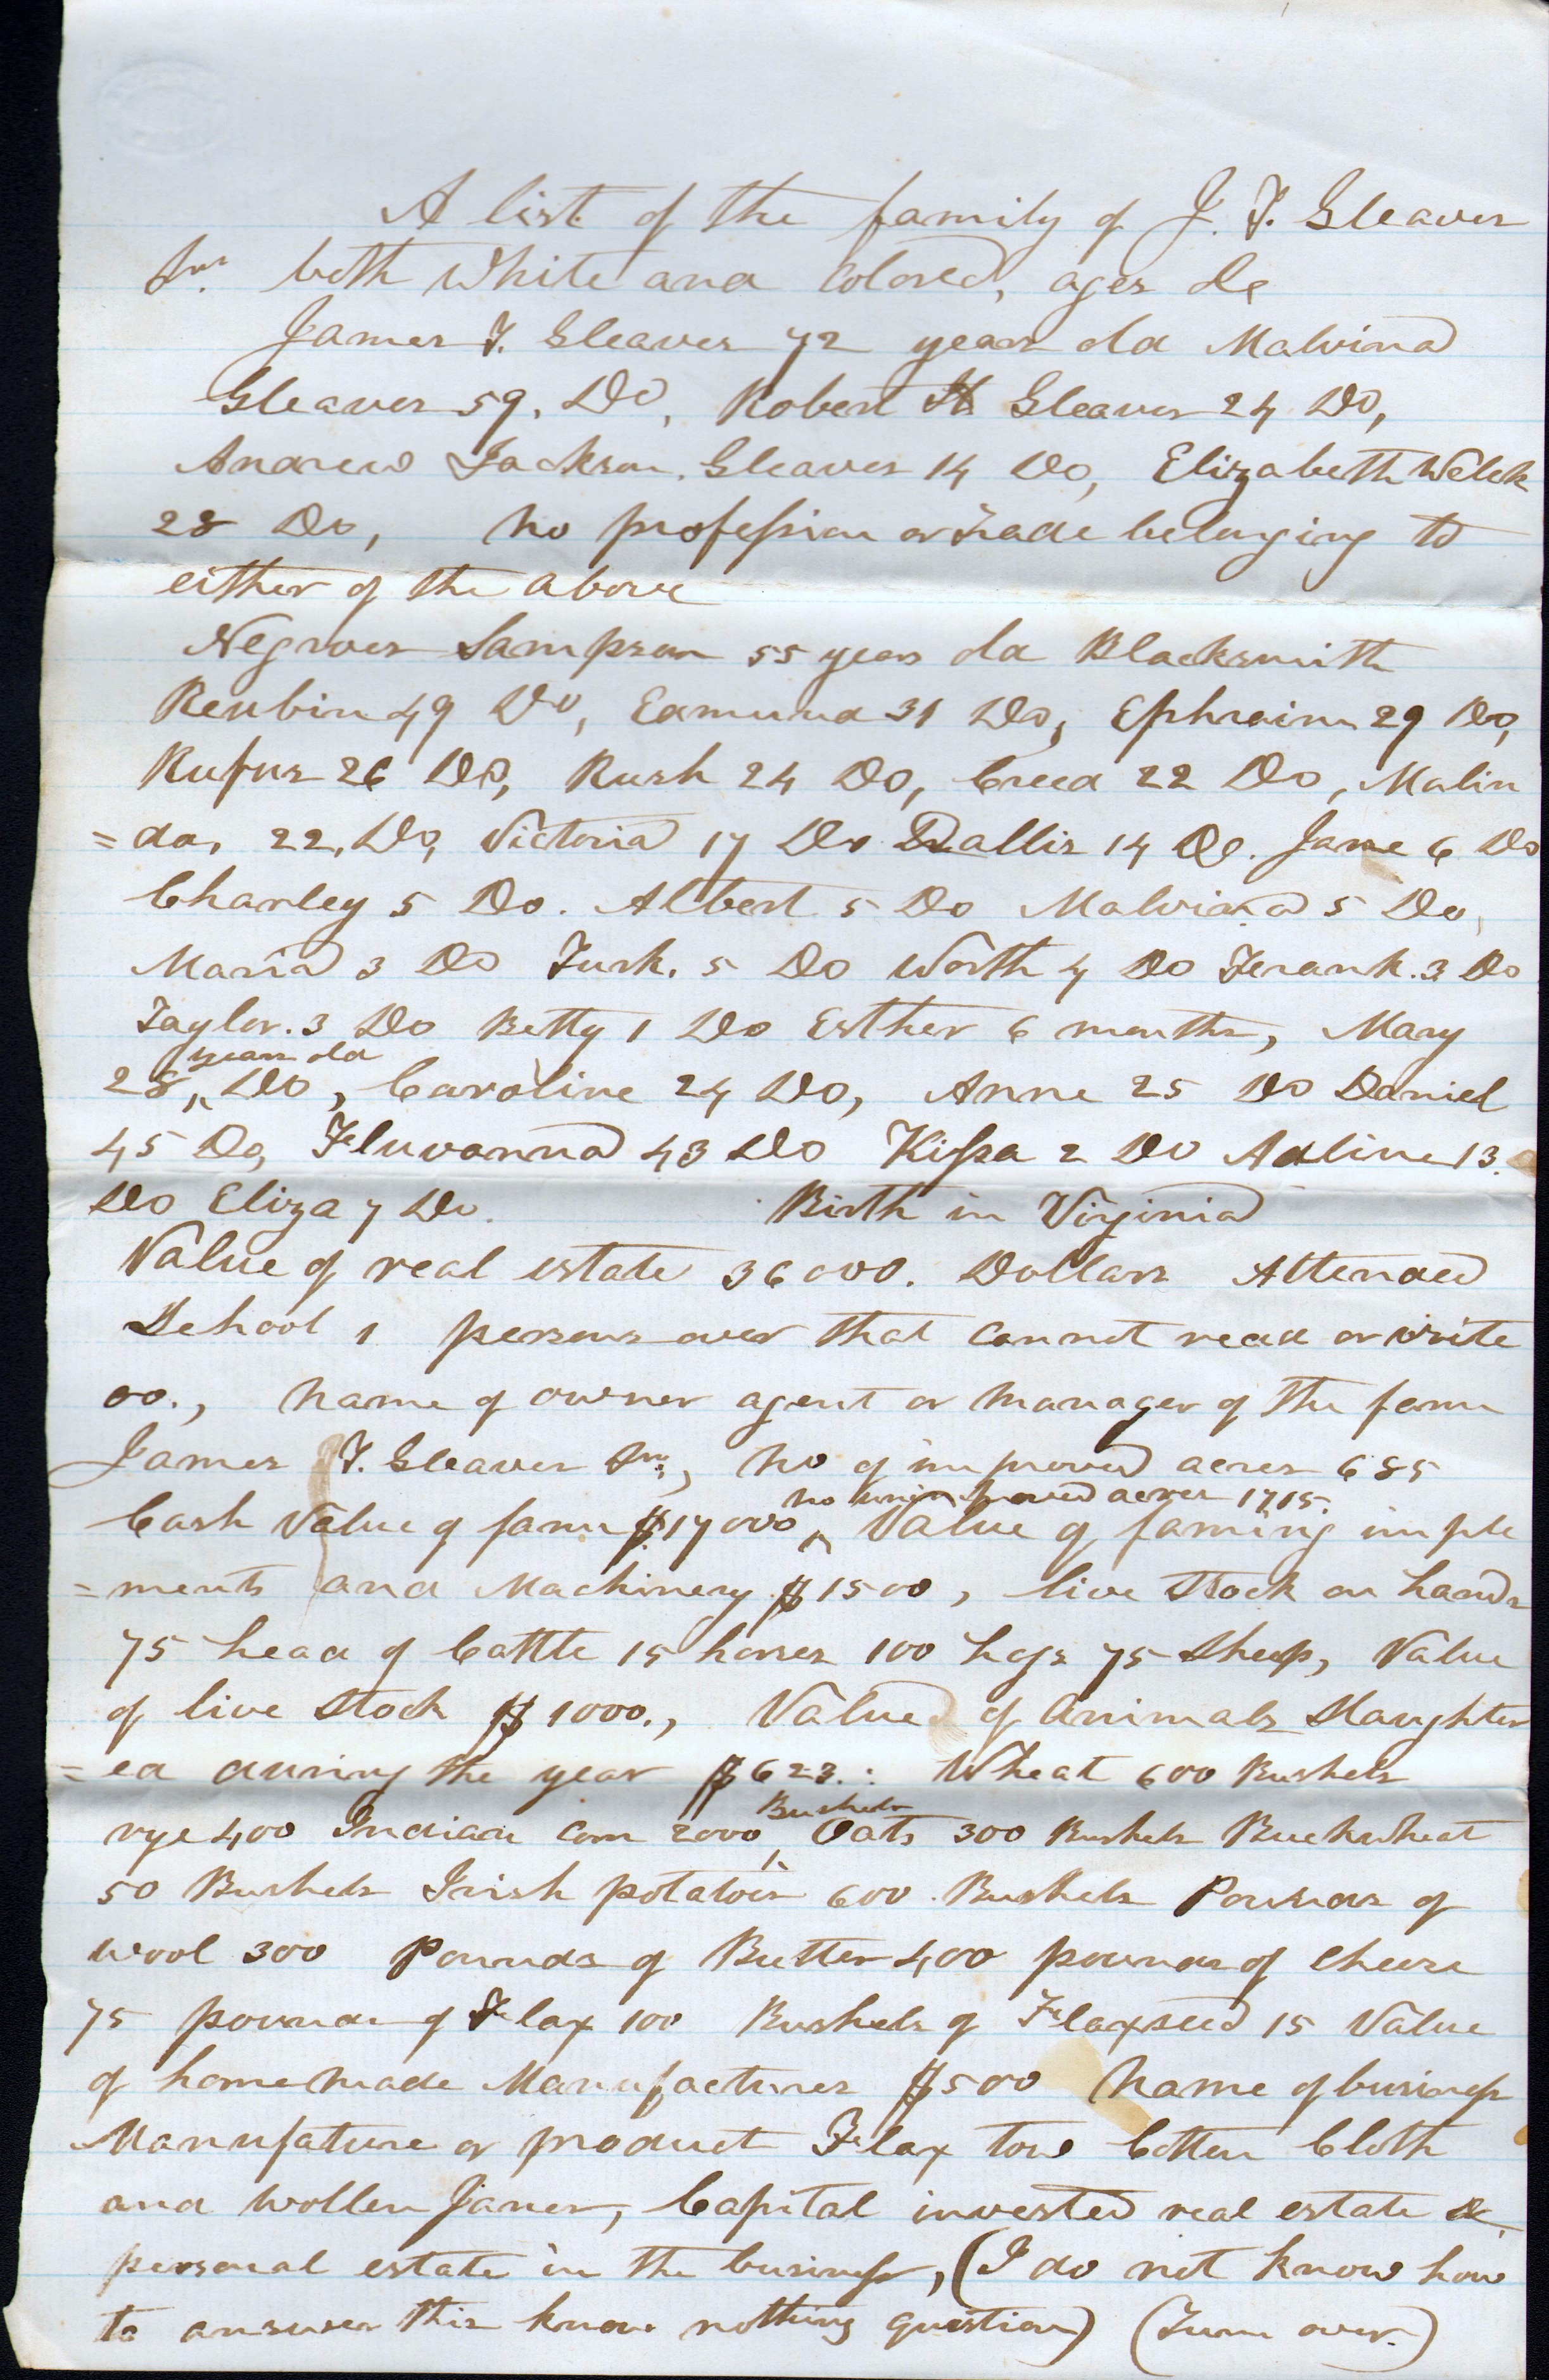 A list of the family of J. T. Gleaves
Snr. both White and Colored, ages &c
James T. Gleaves 72 years old Malvina
Gleaves 59, Do, Robert H Gleaves 24 Do,
Andrew Jackson. Gleaves 14 Do, Elizabeth Welck
28 Do, no profession or trade belonging to
either of the above
Negroes Sampson 55 years old Blacksmith
Reubin 49 Do, Edmund 31 Do, Ephraim 29 Do,
Rufus 26 Do, Rush 24 Do, Creed 22 Do, Malin
=da, 22, Do, Victoria 17 Do Dallis 14 Do. Jane 6 Do
Charley 5 Do. Albert 5 Do Malvina 5 Do,
Maria 3 Do Turk. 5 Do Worth 4 Do Frank. 3 Do
Taylor. 3 Do Betty 1 Do Esther 6 months, Mary
years old
28, Do, Caroline 24 Do, Anne 25 Do Daniel
45 Do, Fluvanna 43 Do Kissa 2 Do Adline 13.
Do Eliza 7 Do. Birth in Virginia
Value of real estate 36000. Dollars Attended
School 1 persons over that cannot read or write
00., name of owner agent or manager of the farm
James T. Gleaves Snr:, no of improved acres 685
no unimproved acres 1715.
Cash Value of farm $17000, Value of farming imple
=ments and Machinery $1500, live Stock on hands
75 head of Cattle 15 horses 100 hogs 75 Sheep, Value
of live Stock $1000., Value of Animals Slaughter
=ed during the year $623.: Wheat 600 Bushels
Bushels
rye 400 Indian Corn 2000, Oats 300 Bushels Buckwheat
50 Bushels Irish potatoes 600. Bushels Pounds of
Wool 300 Pounds of Butter 400 pounds of Cheese
75 pounds of Flax 100 Bushels of Flaxseed 15 Value
of home made Manufactures $500 name of business
Manufature or product Flax tow Cotten Cloth
and Wollen Janes, Capital invested real estate &
personal estate in the business, (I do not know how
to answer this know nothing question) (Turn over.)